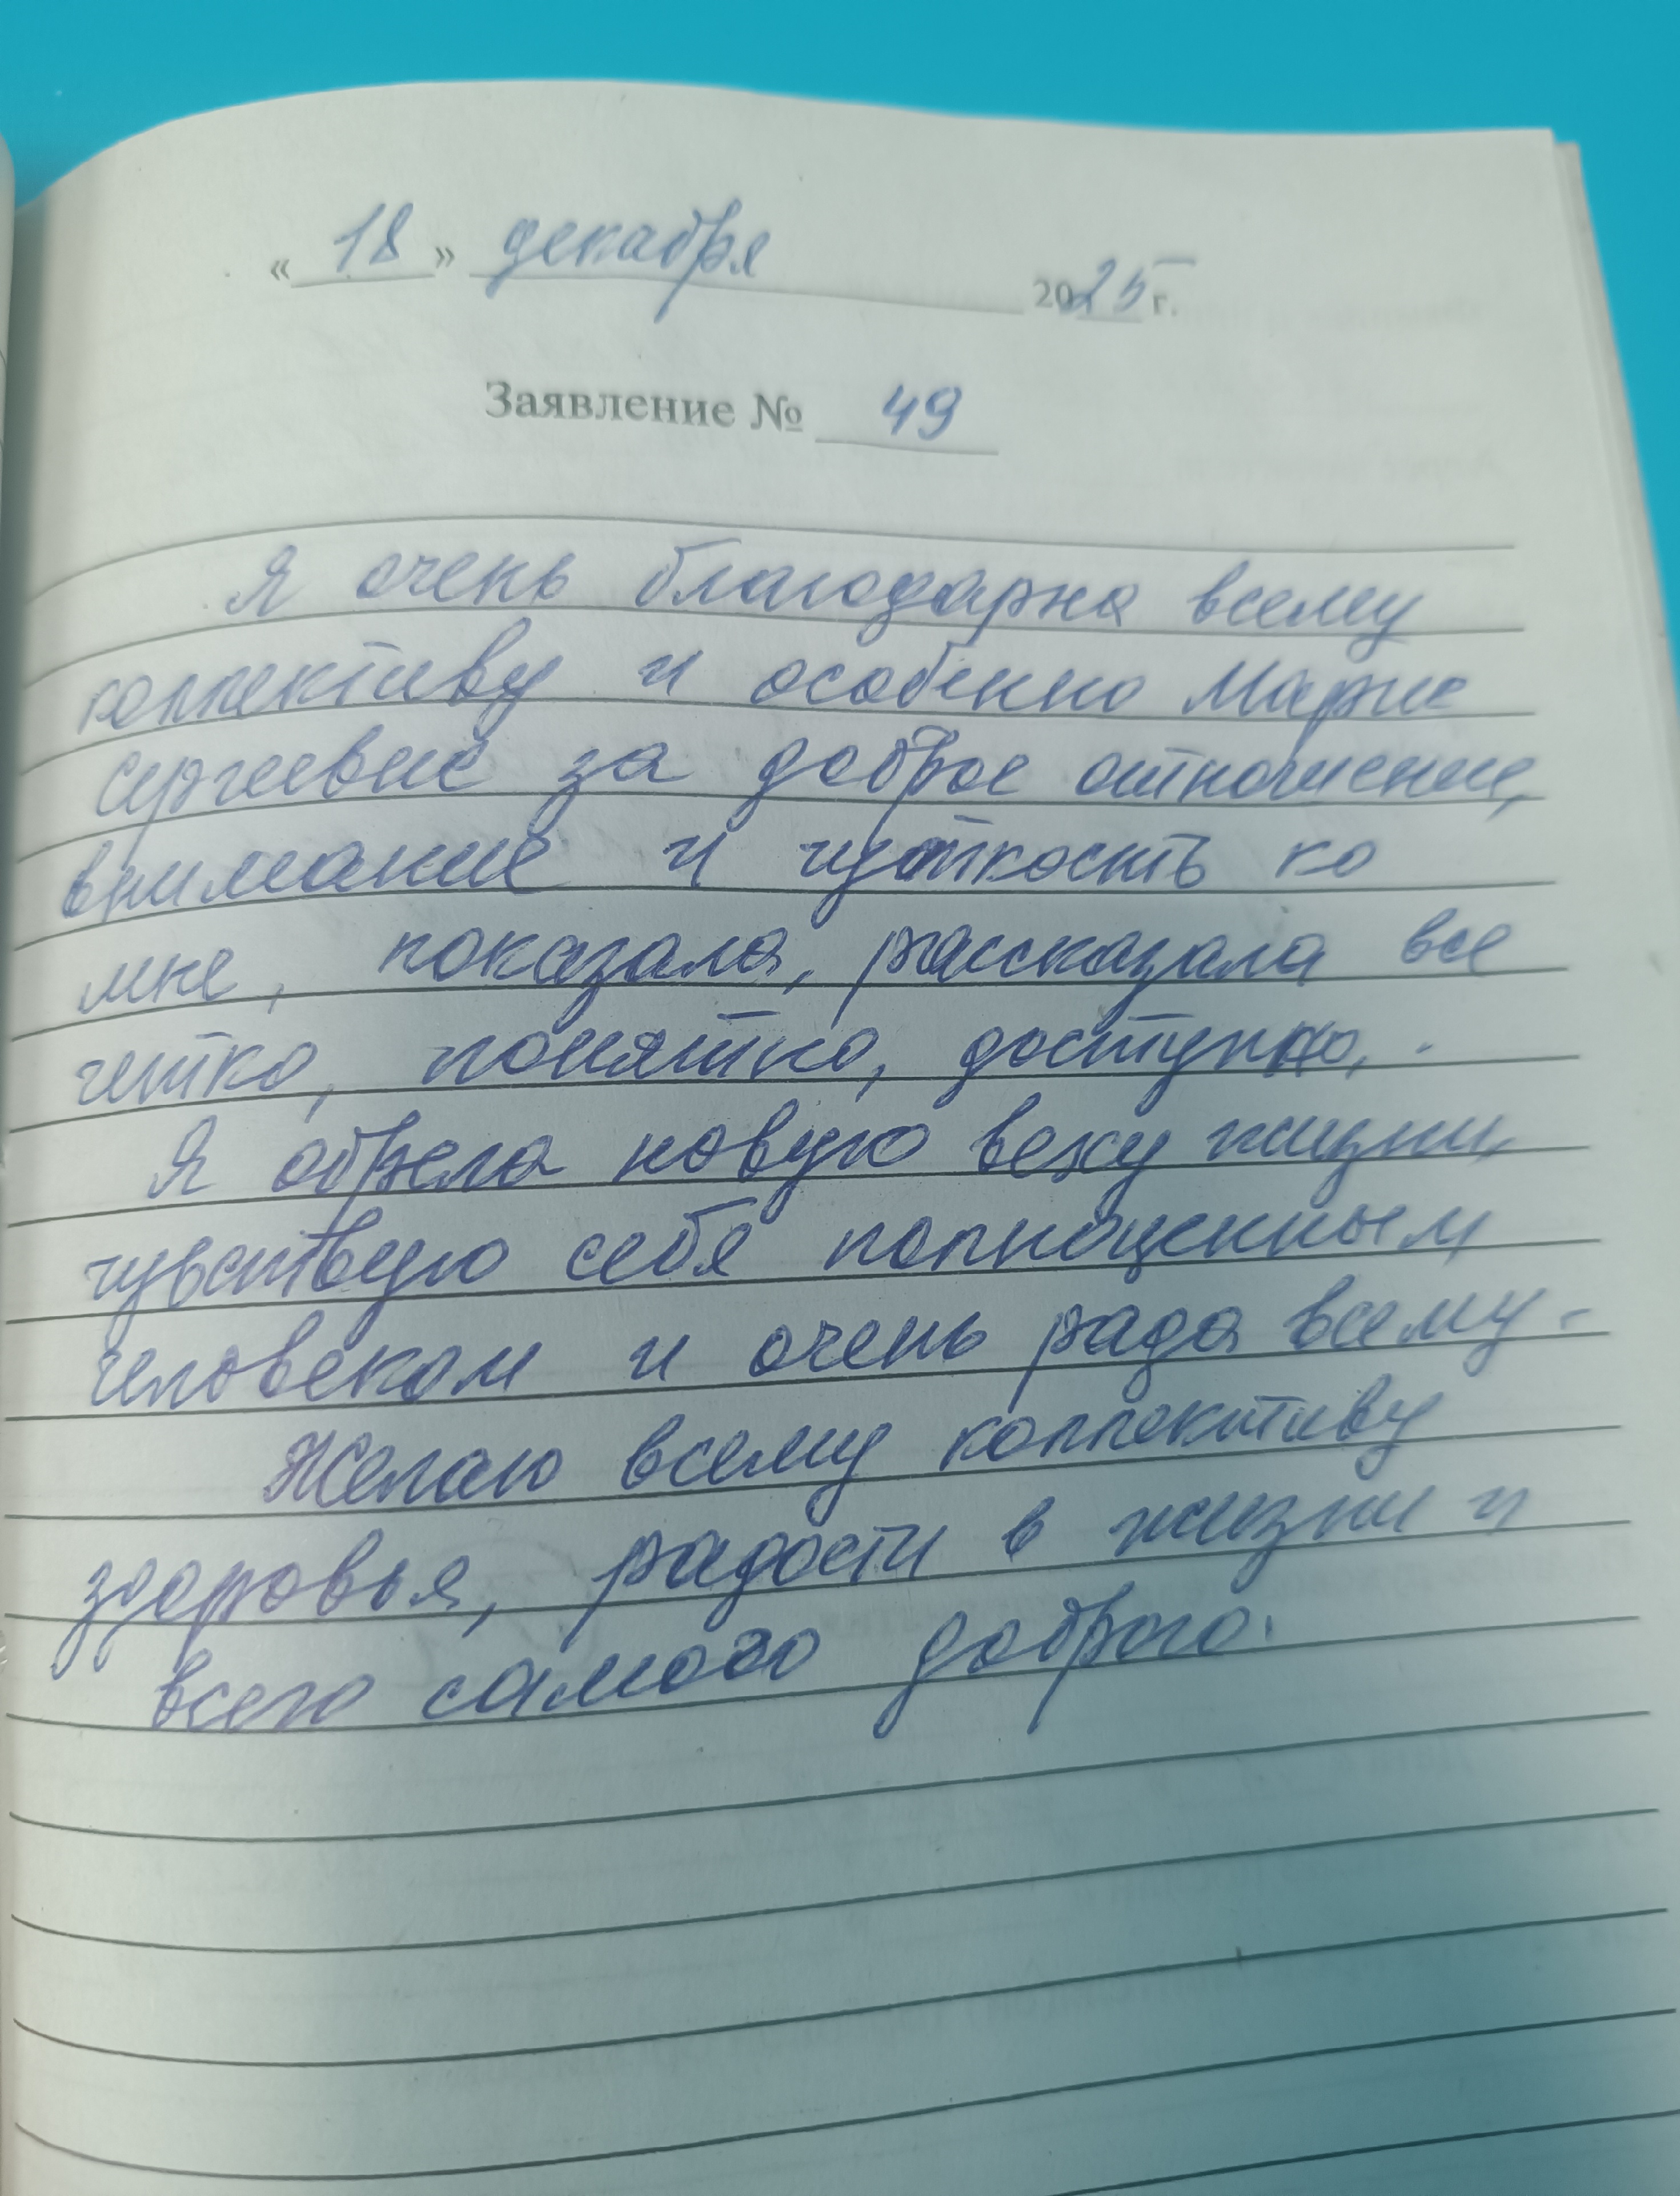 « 18 » декабря 2025 г.
Заявление № 49
Я очень благодарна всему
коллективу и особенно Марие
Сергеевне за доброе отношение,
внимание и чуткость ко
мне, показала, рассказала все
четко, понятно, доступно,.
Я обрела новую веху жизни,
чувствую себя полноценным
человеком и очень рада всему.
Желаю всему коллективу
здоровья, радости в жизни и
всего самого доброго.